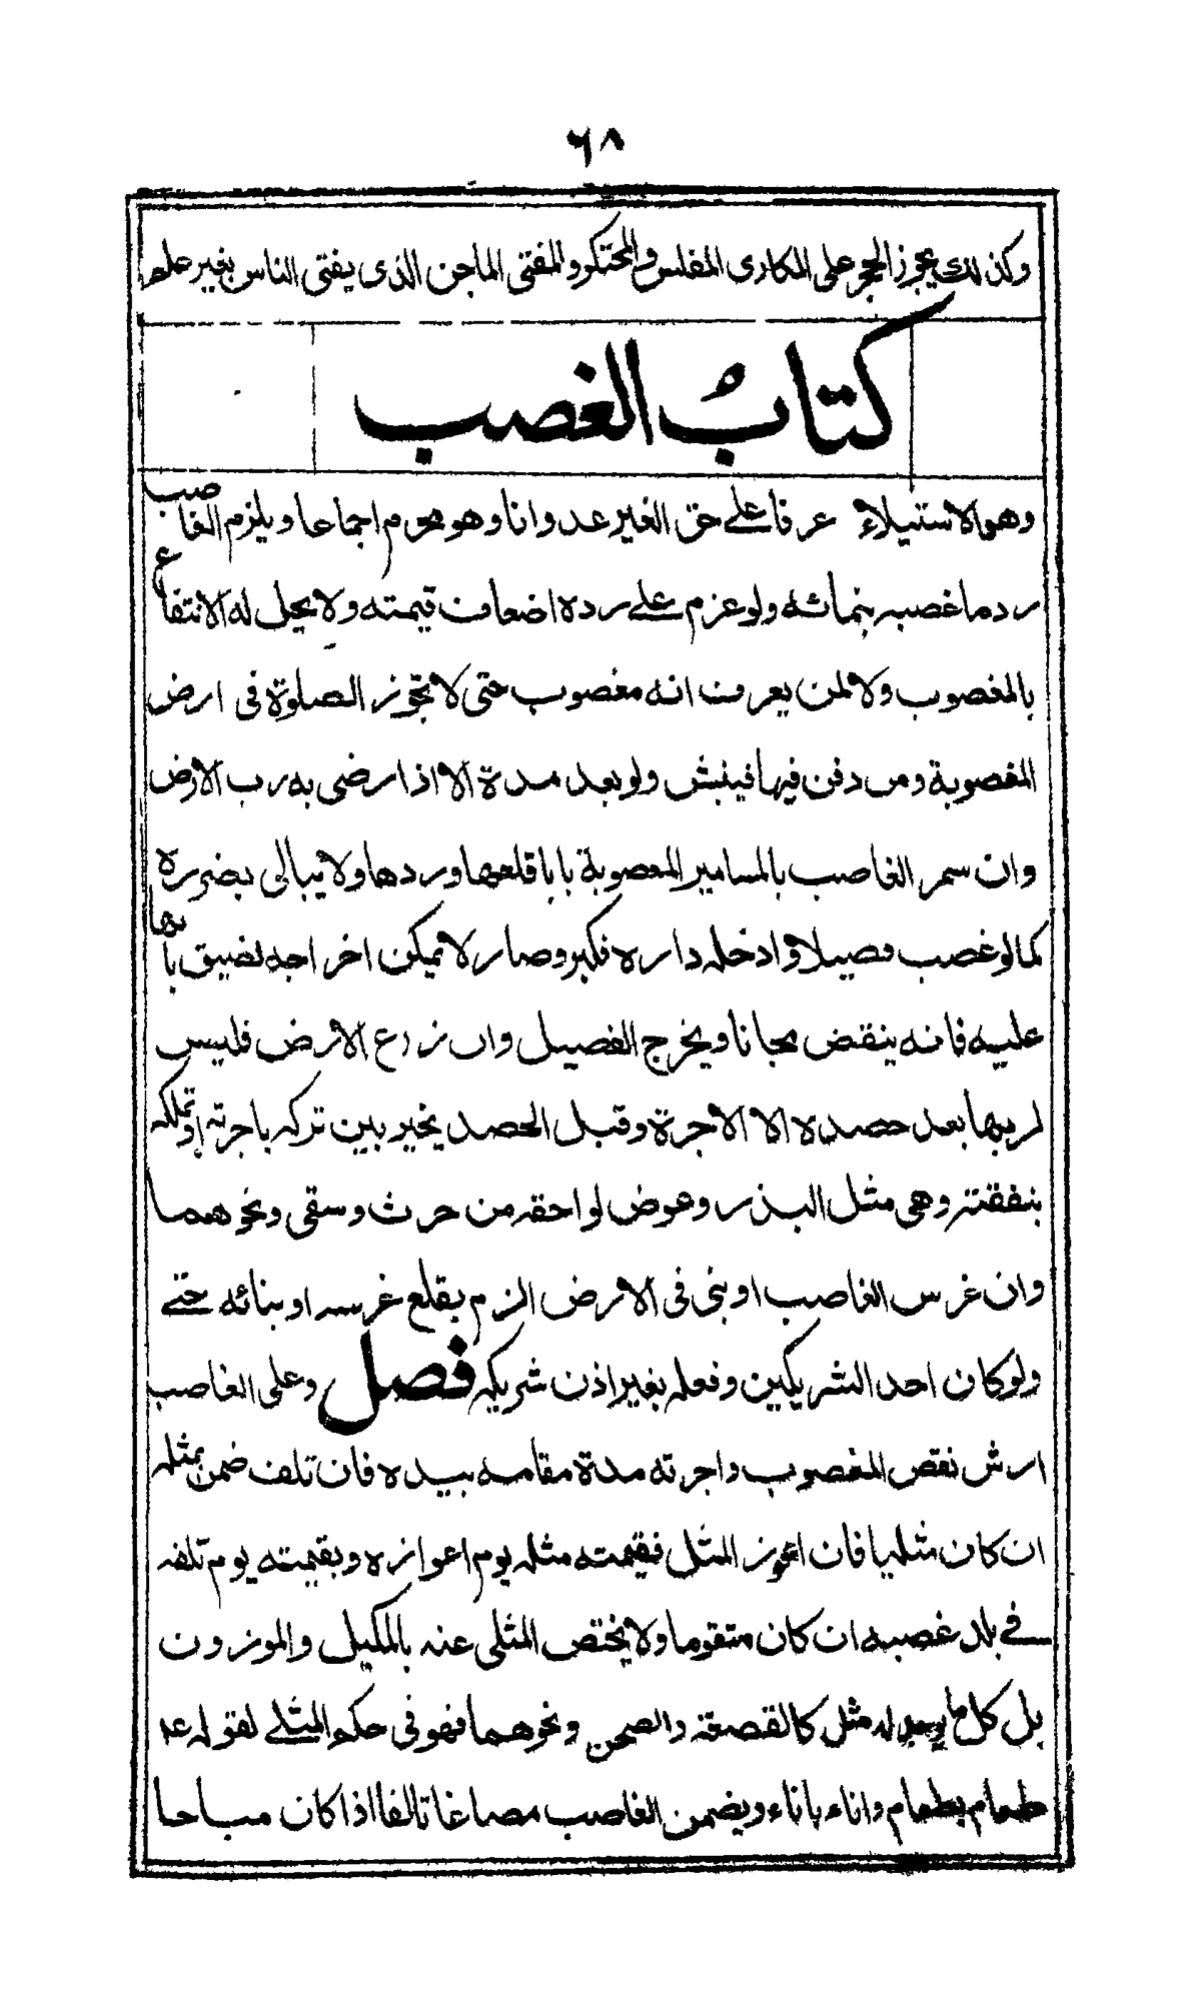 ٦٨
وكذلك يجوز الحجر على المكارى المفلس والمحتكر والمفتى الماجن الذى يفتى الناس بغير علم
كتاب الغصب
وهو الاستيلاء عرفا على حق الغير عدوانا وهو محرم اجماعا ويلزم الغاصب
رد ما غصبه بنمائه ولو غرم على رده اضعاف قيمته ولا يحل له الانتفاع
بالمغصوب ولا لمن يعرف انه مغصوب حتى لا تجوز الصلوة فى ارض
المغصوبة ومن دفن فيها فينبش ولو بعد مدة الا اذا رضى به رب الارض
وان سمر الغاصب بالمسامير المغصوبة بابا قلعها وردها ولا يبالى بضرره
كما لو غصب فصيلا وادخله داره فكبر وصار لا يمكن اخراجه لضيق بابها
عليه فانه ينقض مجانا ويخرج الفصيل وان زرع الارض فليس
لربها بعد حصده الا الاجرة وقبل الحصد يخير بين تركه باجرته او تملكه
بنفقته وهى مثل البذر وعوض لواحقه من حرث وسقى ونحوهما
وان غرس الغاصب او بنى فى الارض الزم بقلع غرسه او بنائه حتى
ولو كان احد الشريكين وفعله بغير اذن شريكه فصل وعلى الغاصب
ارش نقص المغصوب واجرته مدة مقامه بيده فان تلف ضمن بمثله
ان كان مثليا فان اعوز المثل فقيمته مثله يوم اعوازه وبقيمته يوم تلفه
فى بلد غصبه ان كان متقوما ولا يختص المثلى عنه بالمكيل والموزون
بل كل ما يوجد له مثل كالقصعة والصحن ونحوهما فهو فى حكم المثلى لقوله عم
طعام بطعام واناء باناء ويضمن الغاصب مصاغا تالفا اذا كان مباحا